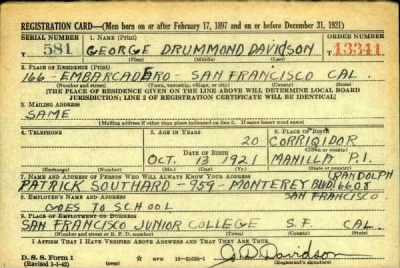 REGISTRATION CARD—(Men born on or after February 17, 1897 and on or before December 31, 1921)
SERIAL NUMBER 1. NAME (Print) ORDER NUMBER
T 581 GEORGE DRUMMOND DAVIDSON T13341
(First) (Middle) (Last)
2. PLACE OF RESIDENCE (Print)
166 - EMBARCADERO - SAN FRANCISCO CAL.
(Number and street) (Town, township, village, or city) (County) (State)
[THE PLACE OF RESIDENCE GIVEN ON THE LINE ABOVE WILL DETERMINE LOCAL BOARD
JURISDICTION; LINE 2 OF REGISTRATION CERTIFICATE WILL BE IDENTICAL]
3. MAILING ADDRESS
SAME
[Mailing address if other than place indicated on line 2. If same insert word same]
4. TELEPHONE 5. AGE IN YEARS 6. PLACE OF BIRTH
20 CORRIQIDOR
DATE OF BIRTH (Town or county)
OCT. 13 1921 MANILLA P.I.
(Exchange) (Number) (Mo.) (Day) (Yr.) (State or country)
7. NAME AND ADDRESS OF PERSON WHO WILL ALWAYS KNOW YOUR ADDRESS RANDOLPH
PATRICK SOUTHARD - 959 - MONTEREY BLVD 6608
8. EMPLOYER'S NAME AND ADDRESS SAN FRANCISCO
GOES TO SCHOOL
9. PLACE OF EMPLOYMENT OR BUSINESS
SAN FRANCISCO JUNIOR COLLEGE S.F. CAL.
(Number and street or R. F. D. number) (Town) (County) (State)
I AFFIRM THAT I HAVE VERIFIED ABOVE ANSWERS AND THAT THEY ARE TRUE.
D. S. S. Form 1
(Revised 1-1-42) (over) 16—21630-1 G D Davidson
(Registrant's signature)